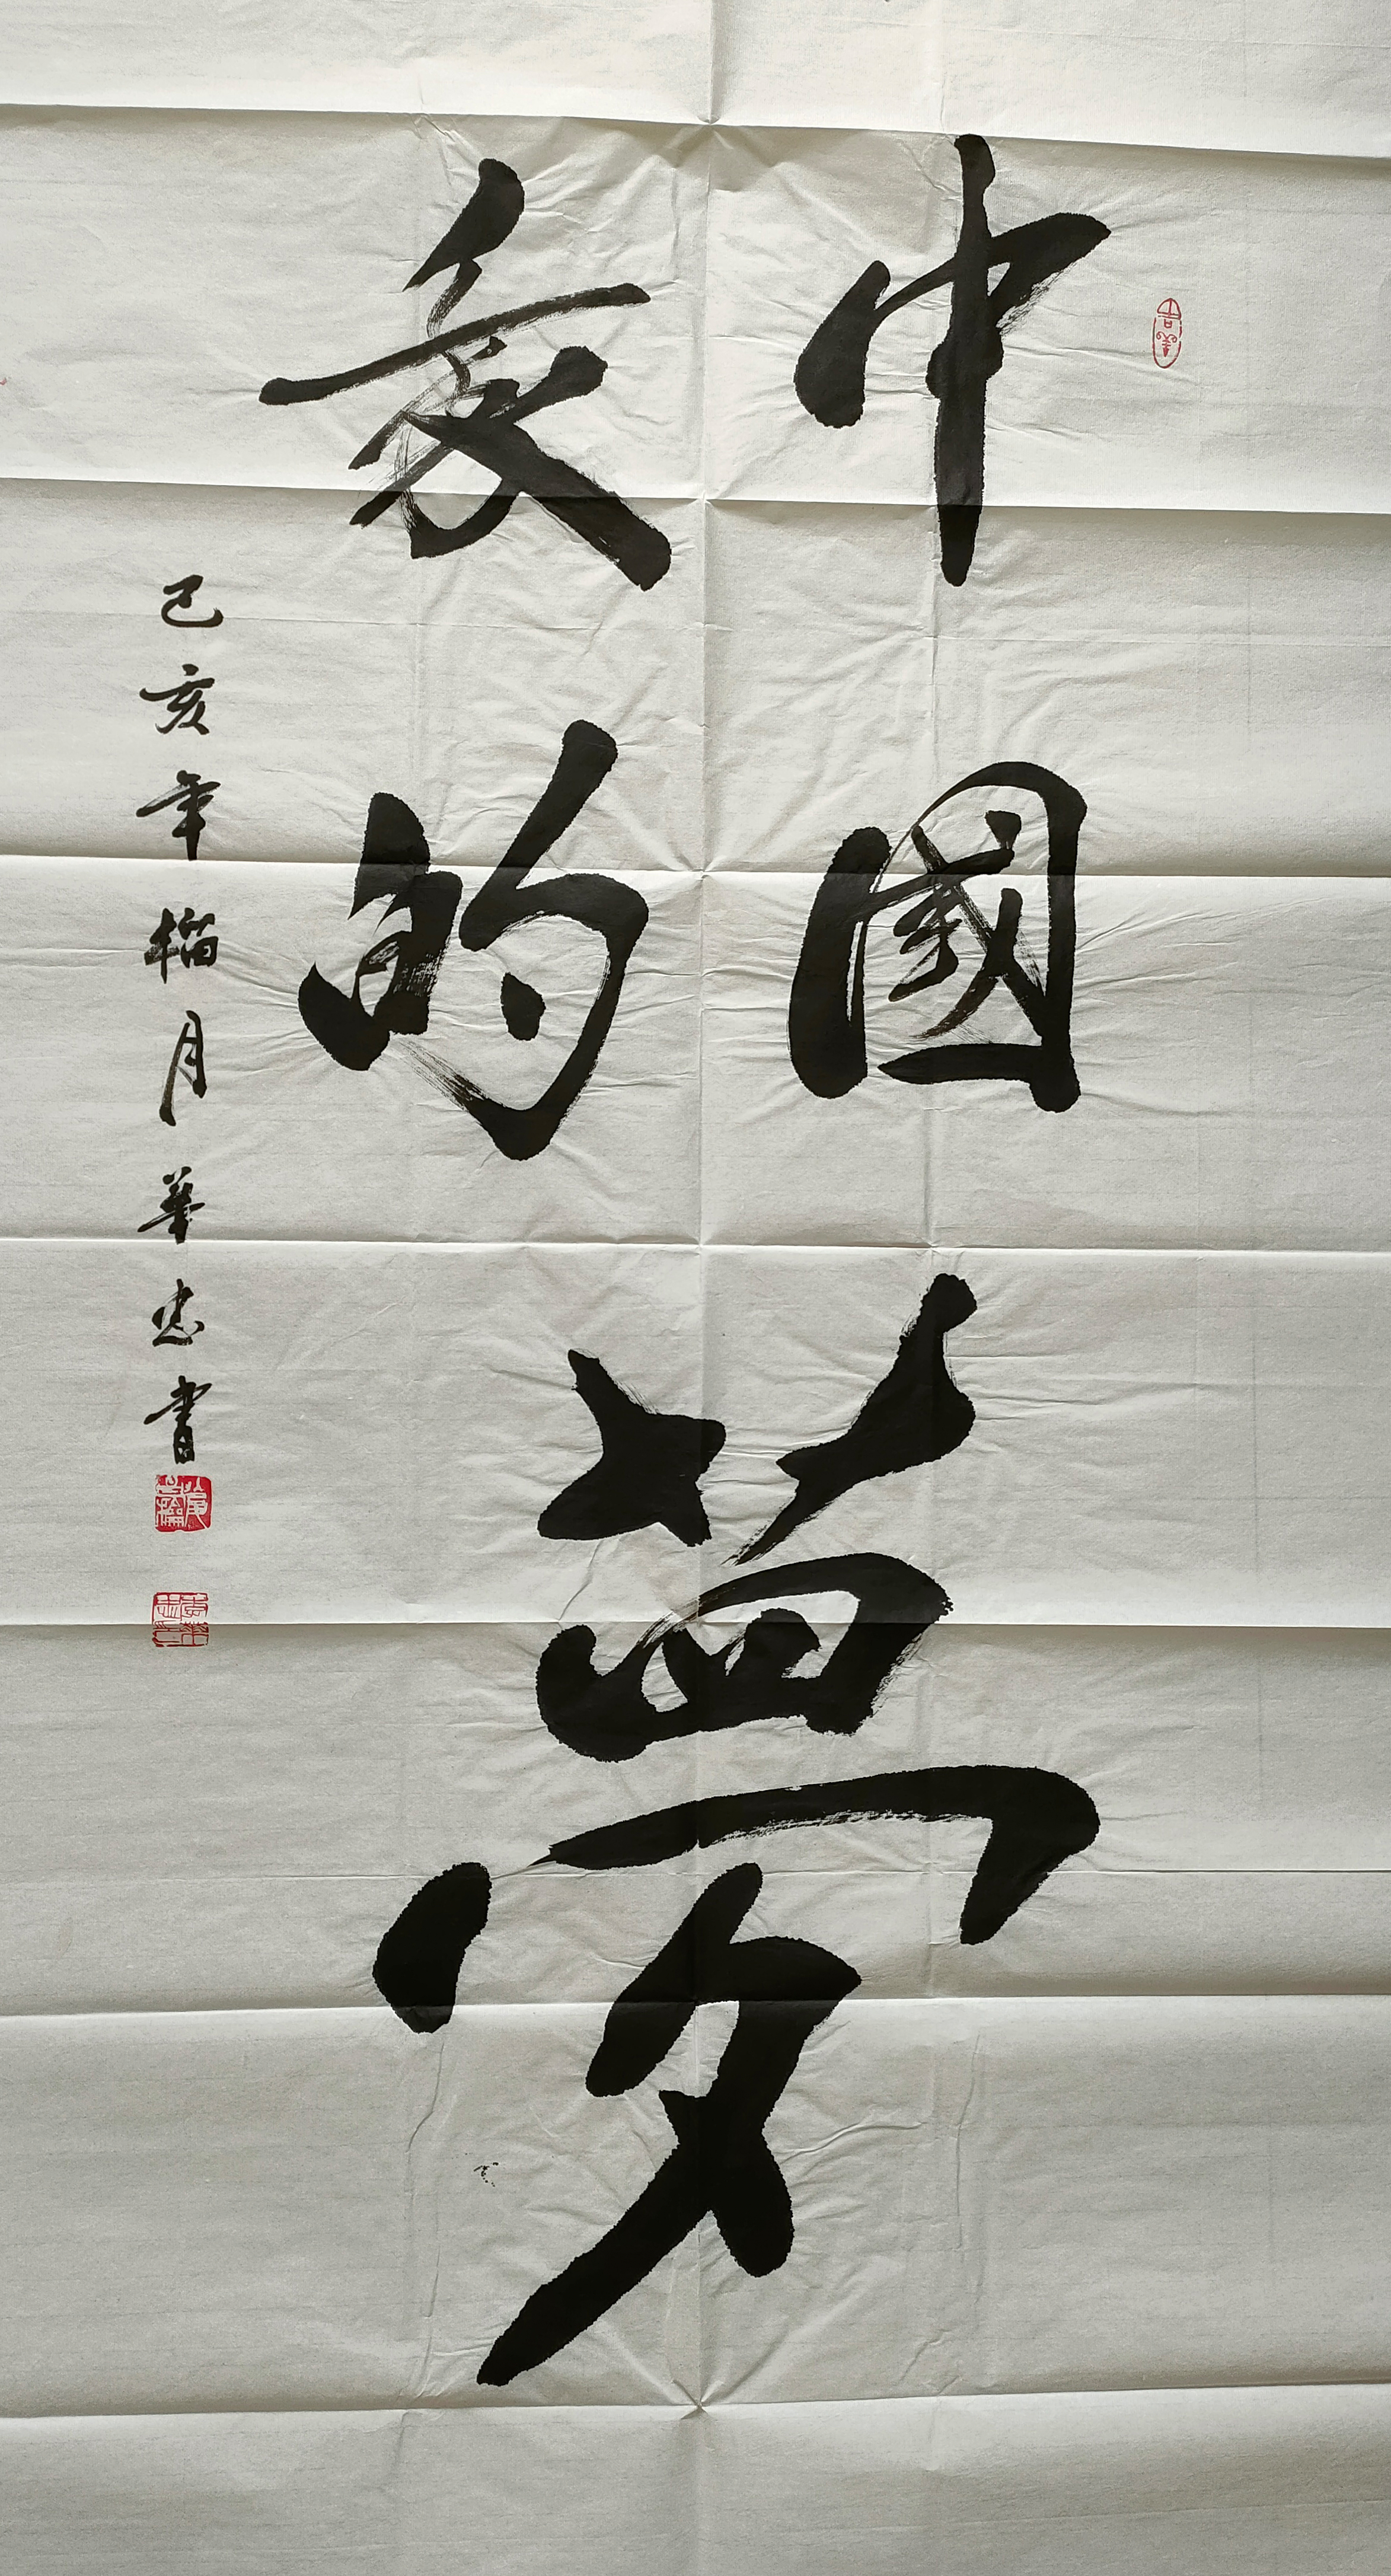 中國夢
我的
己亥年榴月華忠書